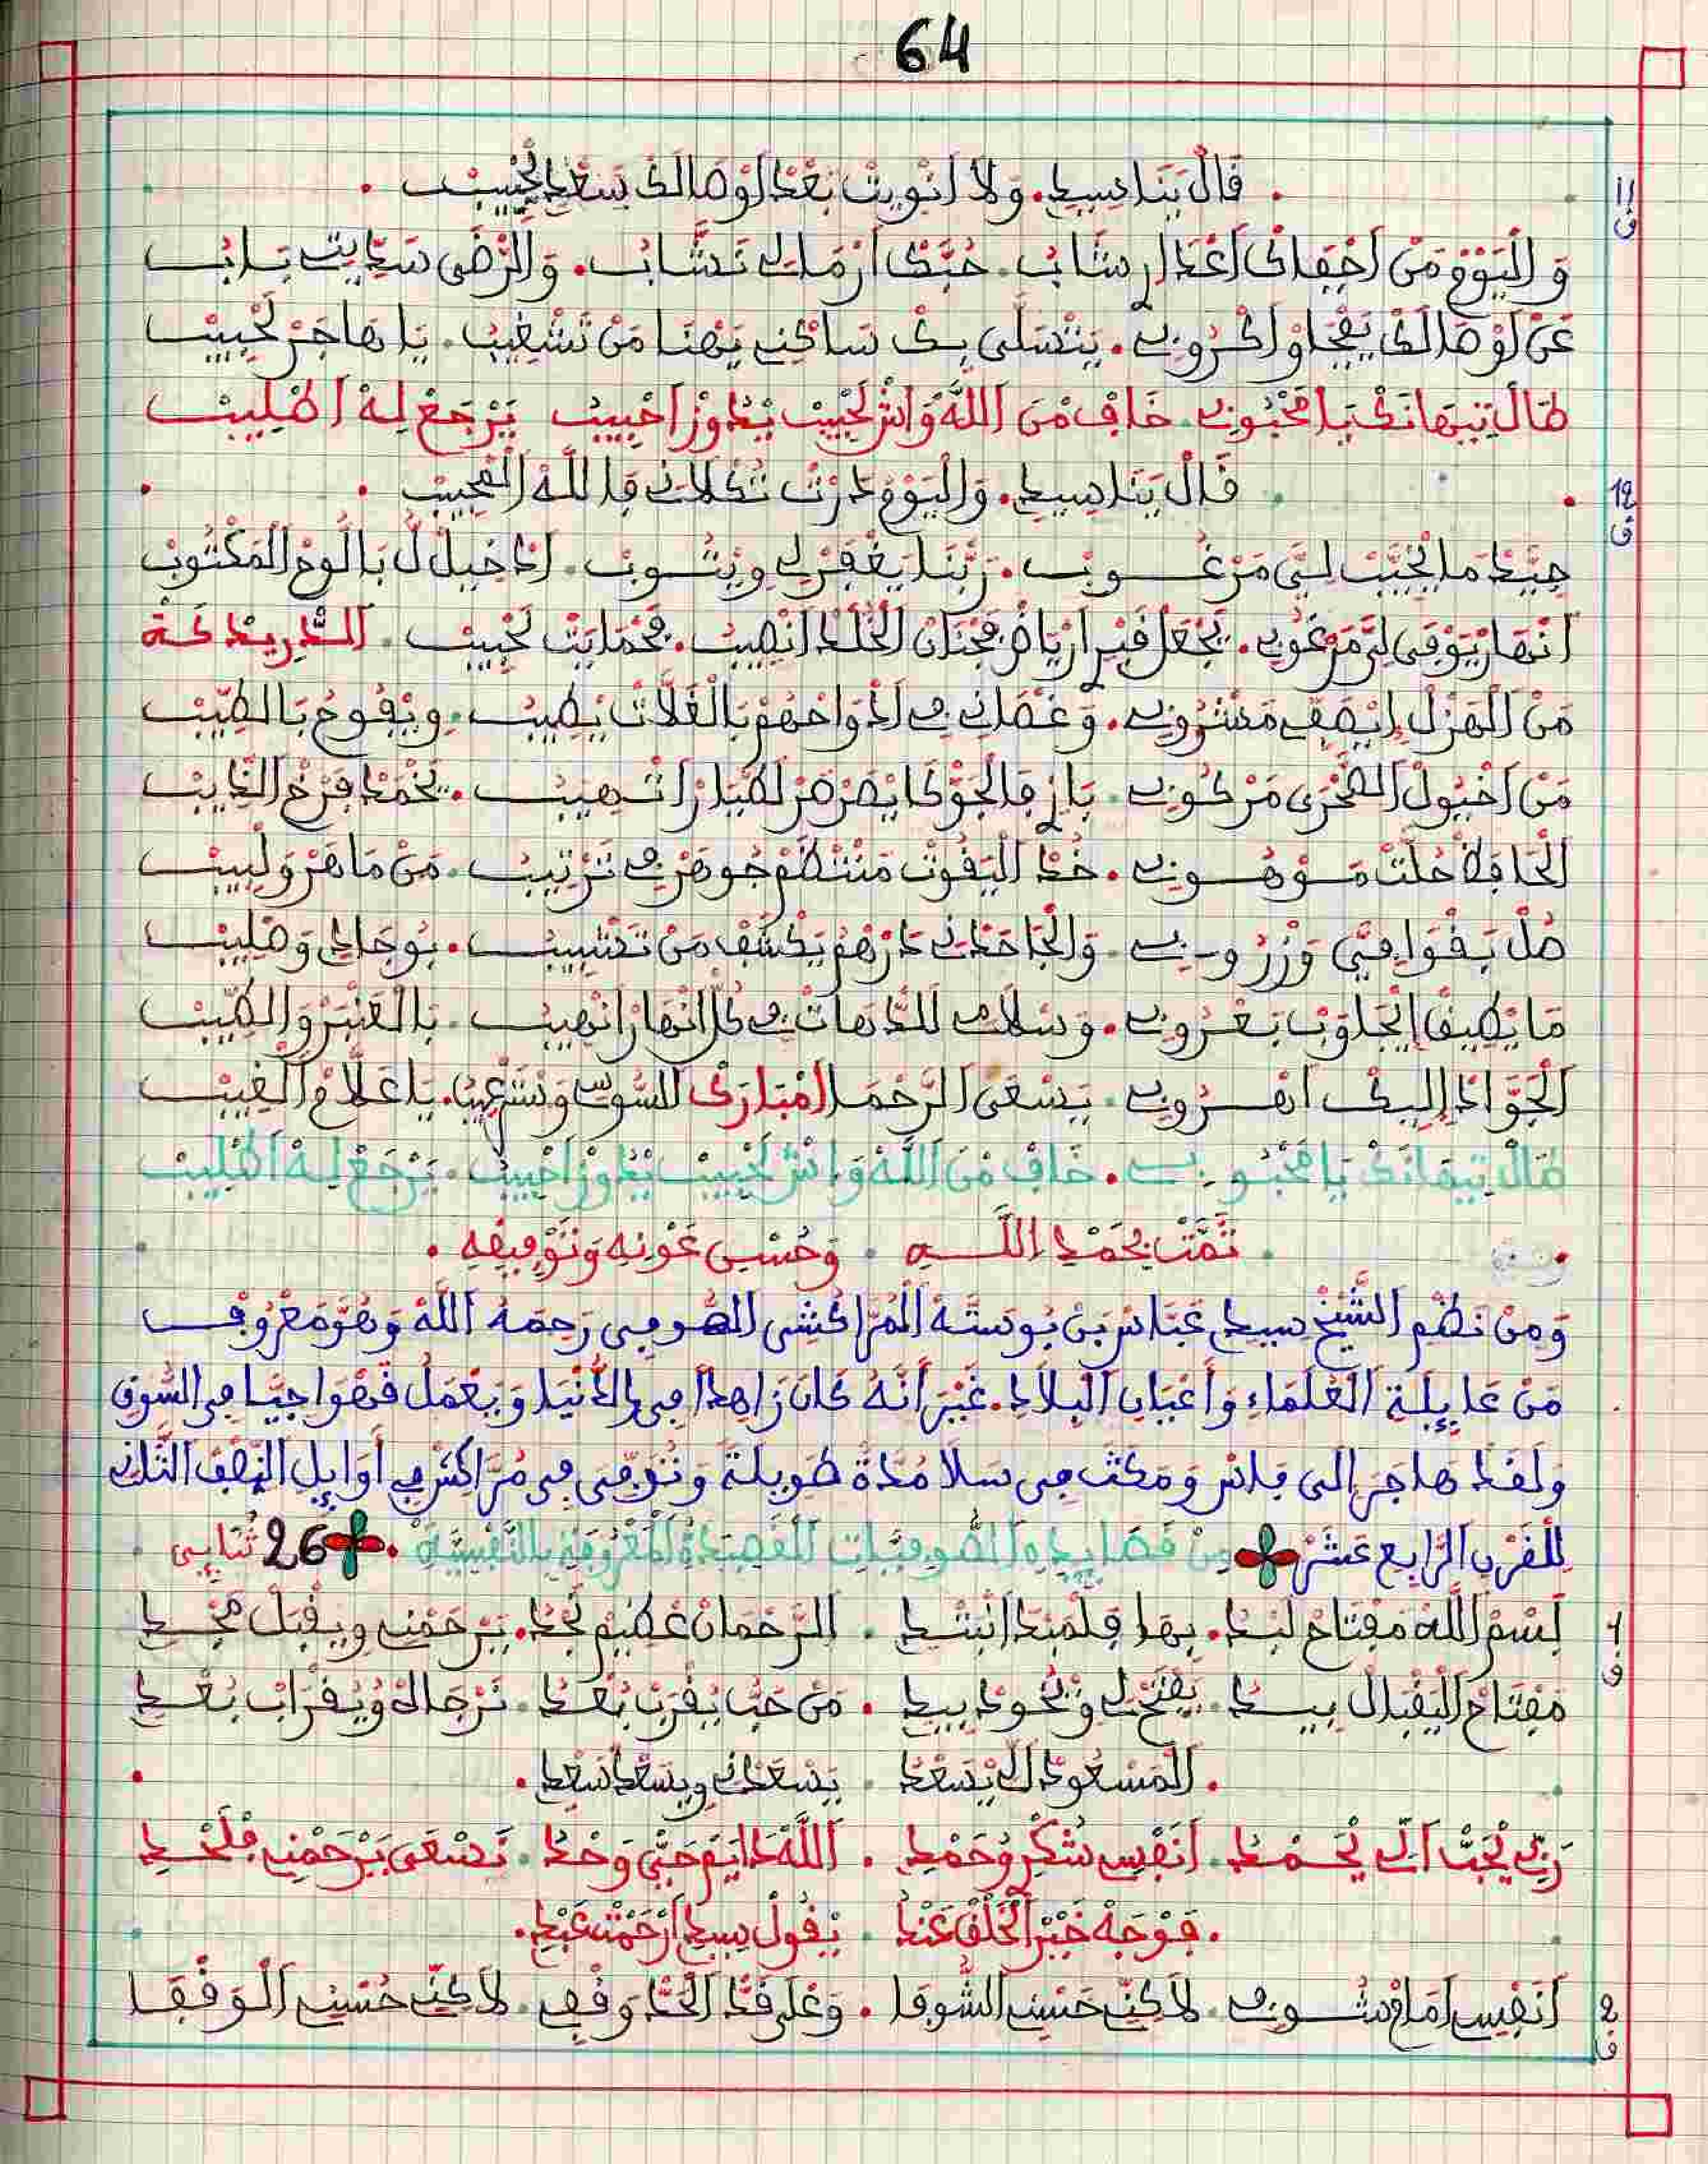 64
11 ق
قَالْ يَنَا سِيدِ. وَلاَ أنْوِيتْ بَعْدْ أوْصَالَكْ يَسْعَدْ لَحْبِيبْ
وَالْيَوْمْ مَنْ أجْفَاكْ أعْدَارِ شَابْ. حُبَّكْ أرْمَانِي نَشَّابْ. وَالرّْضَى سَدِّيتْ بَابْ
عَنْ أوْصَالَكْ يَفْجَاوْ أكْرُوبِي. يَتْسَلَّى بِكْ سَاكْنِي يَهْنَا مَنْ تَشْغِيبْ. يَا هَاجَرْ لَحْبِيبْ
طَالْ تِيهَانَكْ يَا مَحْبُوبِي. خَافْ مْنَ اللَّهْ وَاشْ لَحْبِيبْ يْدُوزْ أحْبِيبْ يَرْجَعْ لِهْ أطْلِيبْ
12 ق
قَالْ يَنَا سِيدِ. وَالْيَوْمْ دَرْتْ تُكْلاَنِي فَاللَّهْ الْمُجِيبْ
جِيَّدْ مَا يْخَيَّبْ لِيَّ مَرْغُوبْ. رَبَّنَا يَغْفَرْ لِي وِيتُوبْ. لَدْخِيلْ لُ بَالُّوحْ الْمَكْتُوبْ
أنْهَارْ يَوْفَى لِيَّ مَرْغُوبِي. يَجْعَلْ فَبْرِ أرْيَاضْ فَجْنَانْ الْخُلْدْ أنْصِيبْ. فَحْمَايَتْ لَحْبِيبْ. الدّْرِيدْكَةْ
مَنْ الْهَزْلْ إيْصَفِي مَشْرُوبِي. وَغْصَانِي فِي أدْوَاحْهُمْ بَالْغَلاَّتْ يْطِيبْ. وِيْفُوحْ بَالطِّيبْ
مَنْ أخْيُولْ الْفَخْرَى مَرْكُوبِي. بَازِ فَالْجَوّْ كَايْصَرْصَرْ لَطْيَارْ أتْهِيبْ. يَخْمَدْ فَرْخْ الذِّيبْ
الْحَافَظْ حُلْتْ مَوْهُوبِي. خُدْ الْيَقُوتْ مَنْتْظَمْ جُوهَرْ فِي تَرْتِيبْ. مَنْ مَاهَرْ وَلْبِيبْ
صُلْ بَقْوَافِيَّ وَزْرُوبِي. وَالْجَاحَدْنِي دَرْهُمْ يَكْشَفْ مَنْ تَشْبِيبْ. بُوجَادِي وَصْلِيبْ
مَا يْطِيقْ إيْجَاوَبْ بَعْرُوبِي. وَسْلاَمِي لَلدُّهَاتْ فِي كُلّْ أنْهَارْ أنْهِيبْ. بَالْعَنْبَرْ وَالطِّيبْ
الْجَوَّادْ إلِيكْ أهْرُوبِي. يَسْعَى الرَّحْمَا أمْبَارَكْ السُّوسِي وَنْتَ مُجِيبْ. يَا عَلاَّمْ الْغِيبْ
طَالْ تِيهَانَكْ يَا مَحْبُوبِي. خَافْ مْنَ اللَّهْ وَاشْ لَحْبِيبْ يْدُوزْ أحْبِيبْ. يَرْجَعْ لِهْ أطْلِيبْ
تَمَّتْ بِحَمْدِ اللَّهِ. وَحُسْنِ عَوْنِهِ وَتَوْفِيقِهِ.
وَمِنْ نَظْمِ الشَّيْخْ سيدي عَبَّاسْ بَنْ بُوسَتَّةْ الْمُرَّاكُشِي الصُّوفِي رَحِمَهُ اللَّهْ وَهُوَّ مَعْرُوفْ
مَنْ عَايِلَةِ الْعُلَمَاءِ وَأَعْيَانِ الْبِلاَدِ. غَيْرَ أَنَّهُ كَانَ زَاهِدًا فِي الدُّنْيَا وَيَعْمَلُ قَهْوَاجِيًّا فِي السُّوقِ
وَلَقَدْ هَاجَرَ إلى فاس وَمَكَثَ فِي سَلاَ مُدَّةً طَوِيلَةً وَتُوُفِّيَ فِي مُرَّاكُشْ فِي أَوَايِلِ النِّصْفِ الثَّانِي
لِلْقَرْنِ الرَّابِعْ عَشَرْ. مِنْ قَصَايِدِهِ الصُّوفِيَّاتِ الْقَصِيدَةُ الْمَعْرُوفَةُ بِالنَّفْسِيَّةْ. 26 ثُنَايِي
1 ق
لِسْمْ اللَّهْ مَفْتَاحْ لَبْدُ. بِهَا فَلْمَبْدَا انْبْدِ. الرَّحْمَانْ عْظِيمْ مَجْدُ. يَرْحَمْنِي وِيقْبَلْ مَجْدِ
مَفْتَاحْ الْيَقْبَالْ بِيدُ. يَفْتَحْ لِي وْيْجُودْ بِيدِ. مَنْ حَبُّ يْقَرَّبْ بُعْدُ. نَرْجَاهْ وُيْقَرَّابْ بُعْدِ
الْمَسْعُودْ الِّي يْسَعْدُ. يَسْعَدْنِي وِيسْعَدْ سَعْدِ.
رَبِّي يْحَبّْ الِّي يْحَمْدُ. أنَفْسِي شُكْرِ وُحَمْدِ. اللَّهْ دَايَمْ حَيّْ وَحْدُ. نَسْعَى يَرْحَمْنِي فْلَحْدِ
فَوْجَهْ خَيْرْ الْخَلْقْ عَنْدُ. يْقُولْ سِيدِ أرْحَمْتْ عَبْدِ.
2 ق
أنَفْسِي أمَاقْ شُوفِي. لاَكِنِّي حَسْنِي الشُّوفَا. وَعْلَى قَدّْ الْحَدّْ وَقْفِي. لاَكِنِّي حُسْنِي الْوَقْفَا